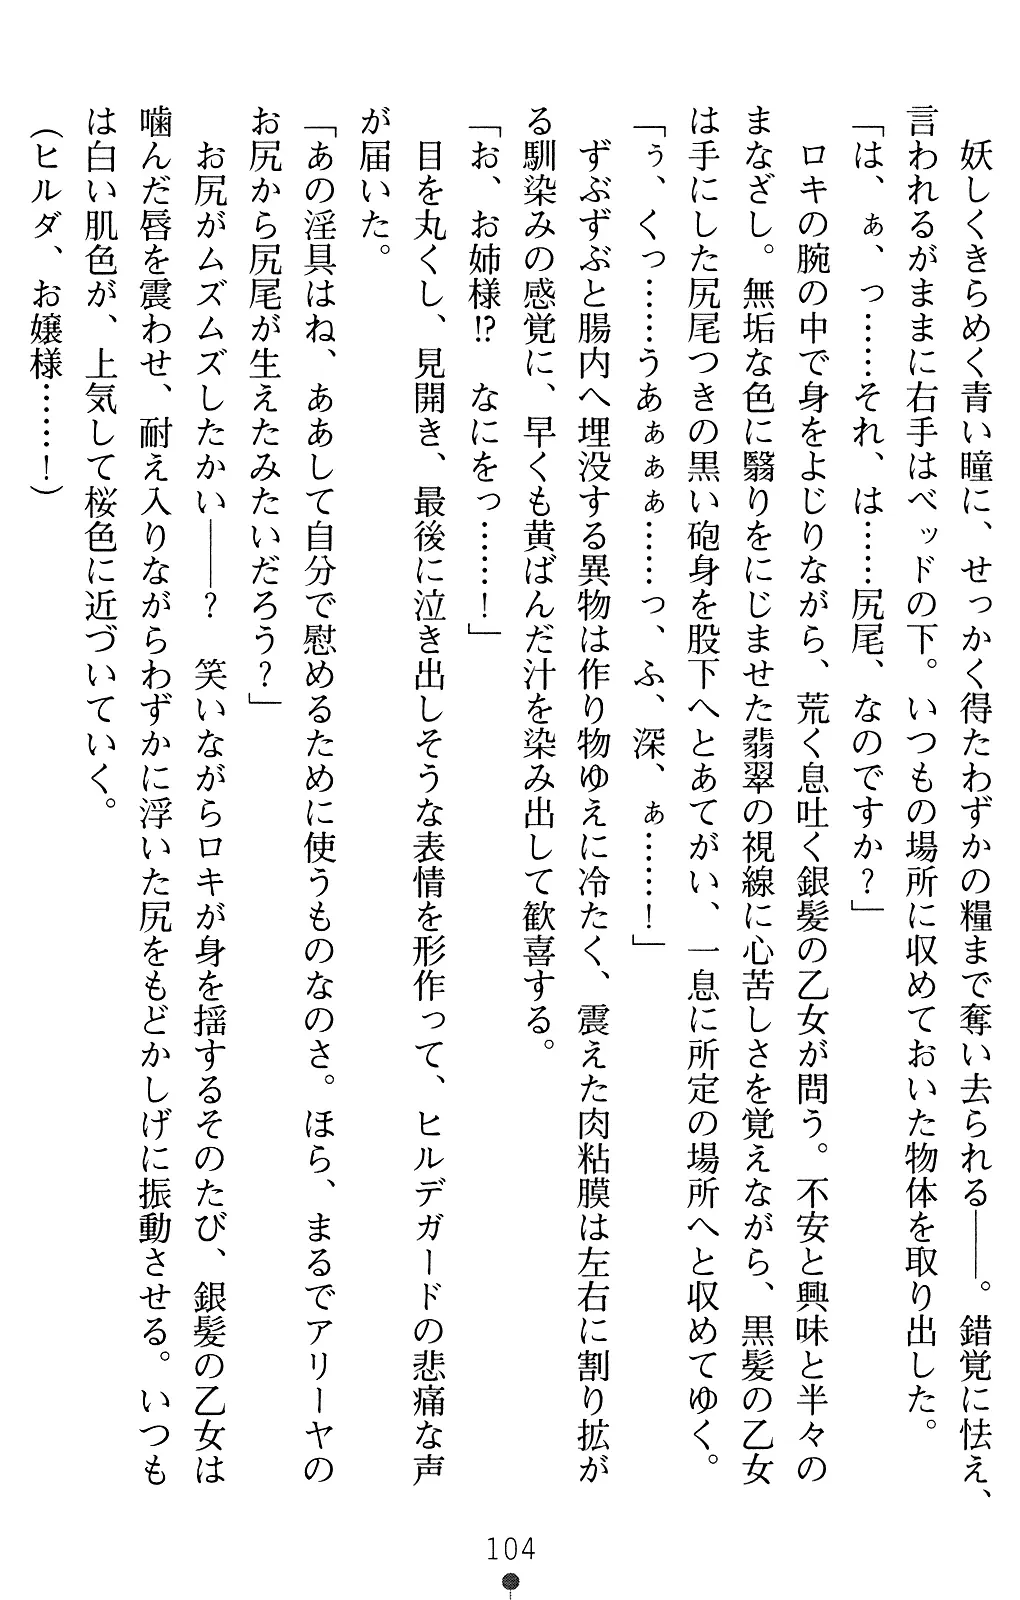 妖しくきらめく青い瞳に、せっかく得たわずかの糧まで奪い去られる――。錯覚に怯え、
言われるがままに右手はベッドの下。いつもの場所に収めておいた物体を取り出した。
「は、ぁ、っ……それ、は……尻尾、なのですか？」
ロキの腕の中で身をよじりながら、荒く息吐く銀髪の乙女が問う。不安と興味と半々の
まなざし。無垢な色に翳りをにじませた翡翠の視線に心苦しさを覚えながら、黒髪の乙女
は手にした尻尾つきの黒い砲身を股下へとあてがい、一息に所定の場所へと収めてゆく。
「ぅ、くっ……うあぁぁぁ……っ、ふ、深、ぁ……！」
ずぶずぶと腸内へ埋没する異物は作り物ゆえに冷たく、震えた肉粘膜は左右に割り拡が
る馴染みの感覚に、早くも黄ばんだ汁を染み出して歓喜する。
「お、お姉様!?　なにをっ……！」
目を丸くし、見開き、最後に泣き出しそうな表情を形作って、ヒルデガードの悲痛な声
が届いた。
「あの淫具はね、ああして自分で慰めるために使うものなのさ。ほら、まるでアリーヤの
お尻から尻尾が生えたみたいだろう？」
お尻がムズムズしたかい――？　笑いながらロキが身を揺するそのたび、銀髪の乙女は
噛んだ唇を震わせ、耐え入りながらわずかに浮いた尻をもどかしげに振動させる。いつも
は白い肌色が、上気して桜色に近づいていく。
（ヒルダ、お嬢様……！）
104